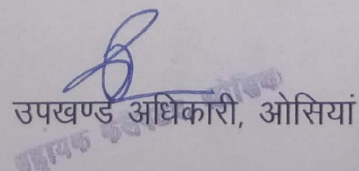 उपखण्ड अधिकारी, ओसियां